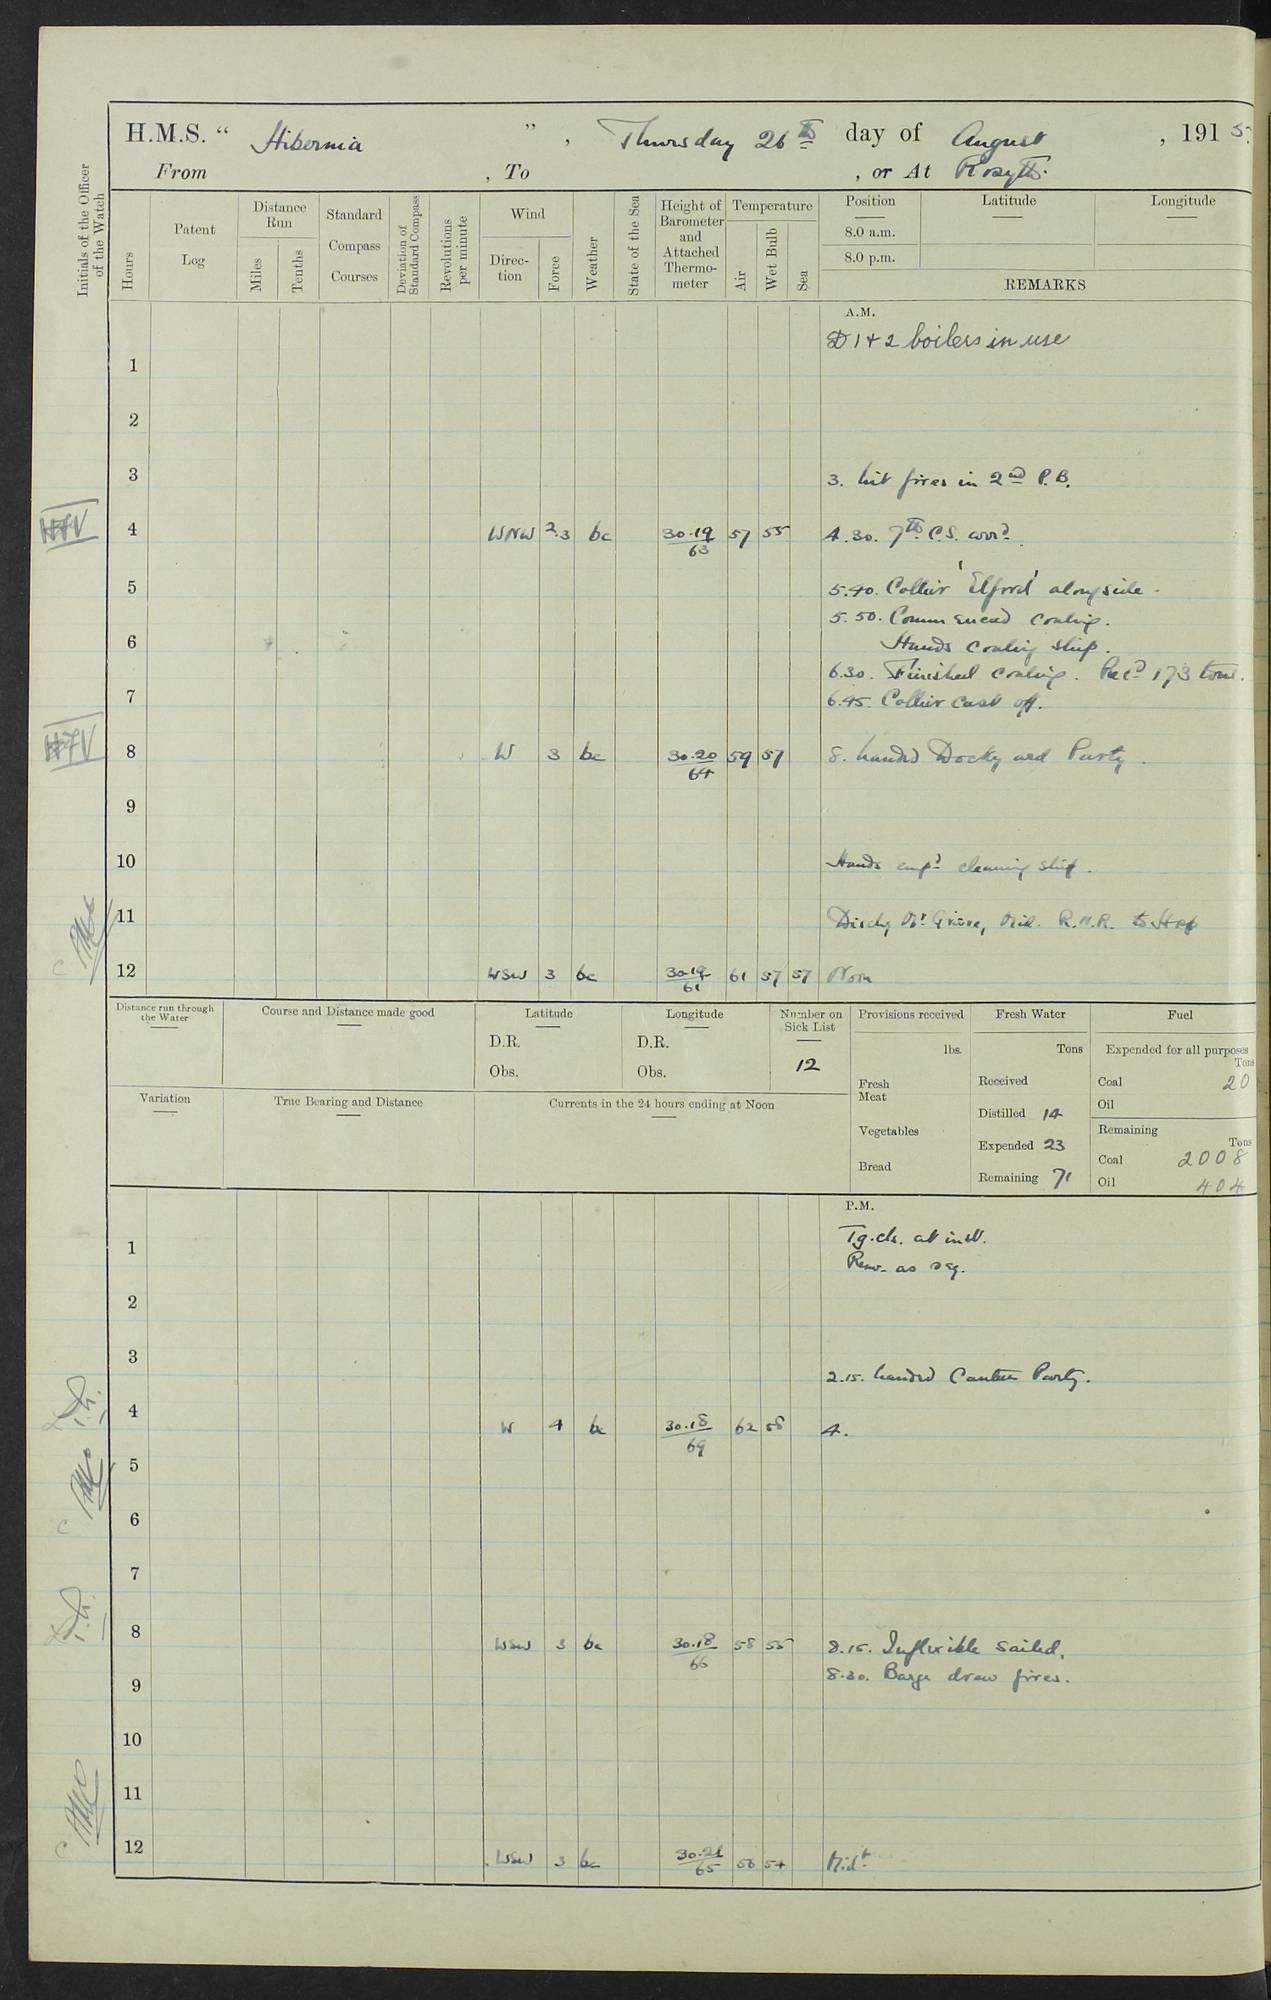 H.M.S. " Hibernia ", Thursday 26th day of August, 1915.
From , To , or At Rosyth.
Initials of the Officer of the Watch
Hours
Patent Log
Distance Run
Miles
Tenths
Standard Compass Courses
Deviation of Standard Compass
Revolutions per minute
Wind
Direction
Force
Weather
State of the Sea
Height of Barometer and Attached Thermometer
Temperature
Air
Wet Bulb
Sea
Position
Latitude
Longitude
8.0 a.m.
8.0 p.m.
REMARKS
A.M.
D 1 & 2 boilers in use
1
2
3 3. lit fires in 2nd P.B.
4 WNW 2.3 bc 30.19/63 57 55 4.30. 7th C.S. arrd.
5 5.40. Collier 'Elford' alongside.
5.50. Commenced coaling.
6 Hands coaling ship.
6.30. Finished coaling. Recd 173 tons.
7 6.45. Collier cast off.
8 W 3 bc 30.20/64 59 57 8. landed Dockyard Party.
9
10 Hands empd cleaning ship.
11 Disch Mr. Mid. R.N.R. to
12 WSW 3 bc 30.19/61 61 57 57 Noon
Distance run through the Water
Course and Distance made good
Latitude
D.R.
Obs.
Longitude
D.R.
Obs.
Number on Sick List
12
Provisions received
lbs.
Fresh Meat
Vegetables
Bread
Fresh Water
Tons
Received
Distilled 14
Expended 23
Remaining 71
Fuel
Expended for all purposes
Tons
Coal 20
Oil
Remaining
Tons
Coal 2008
Oil 404
Variation
True Bearing and Distance
Currents in the 24 hours ending at Noon
P.M.
1 Tg. cls. at inst.
Rem. as req.
2
3 2.15. landed Canteen Party.
4 W 4 bc 30.18/69 62 58 4.
5
6
7
8 WSW 3 bc 30.18/66 58 55 8.15. Inflexible sailed.
9 8.30. Barge drew fires.
10
11
12 WSW 3 bc 30.21/65 56 54 Midt